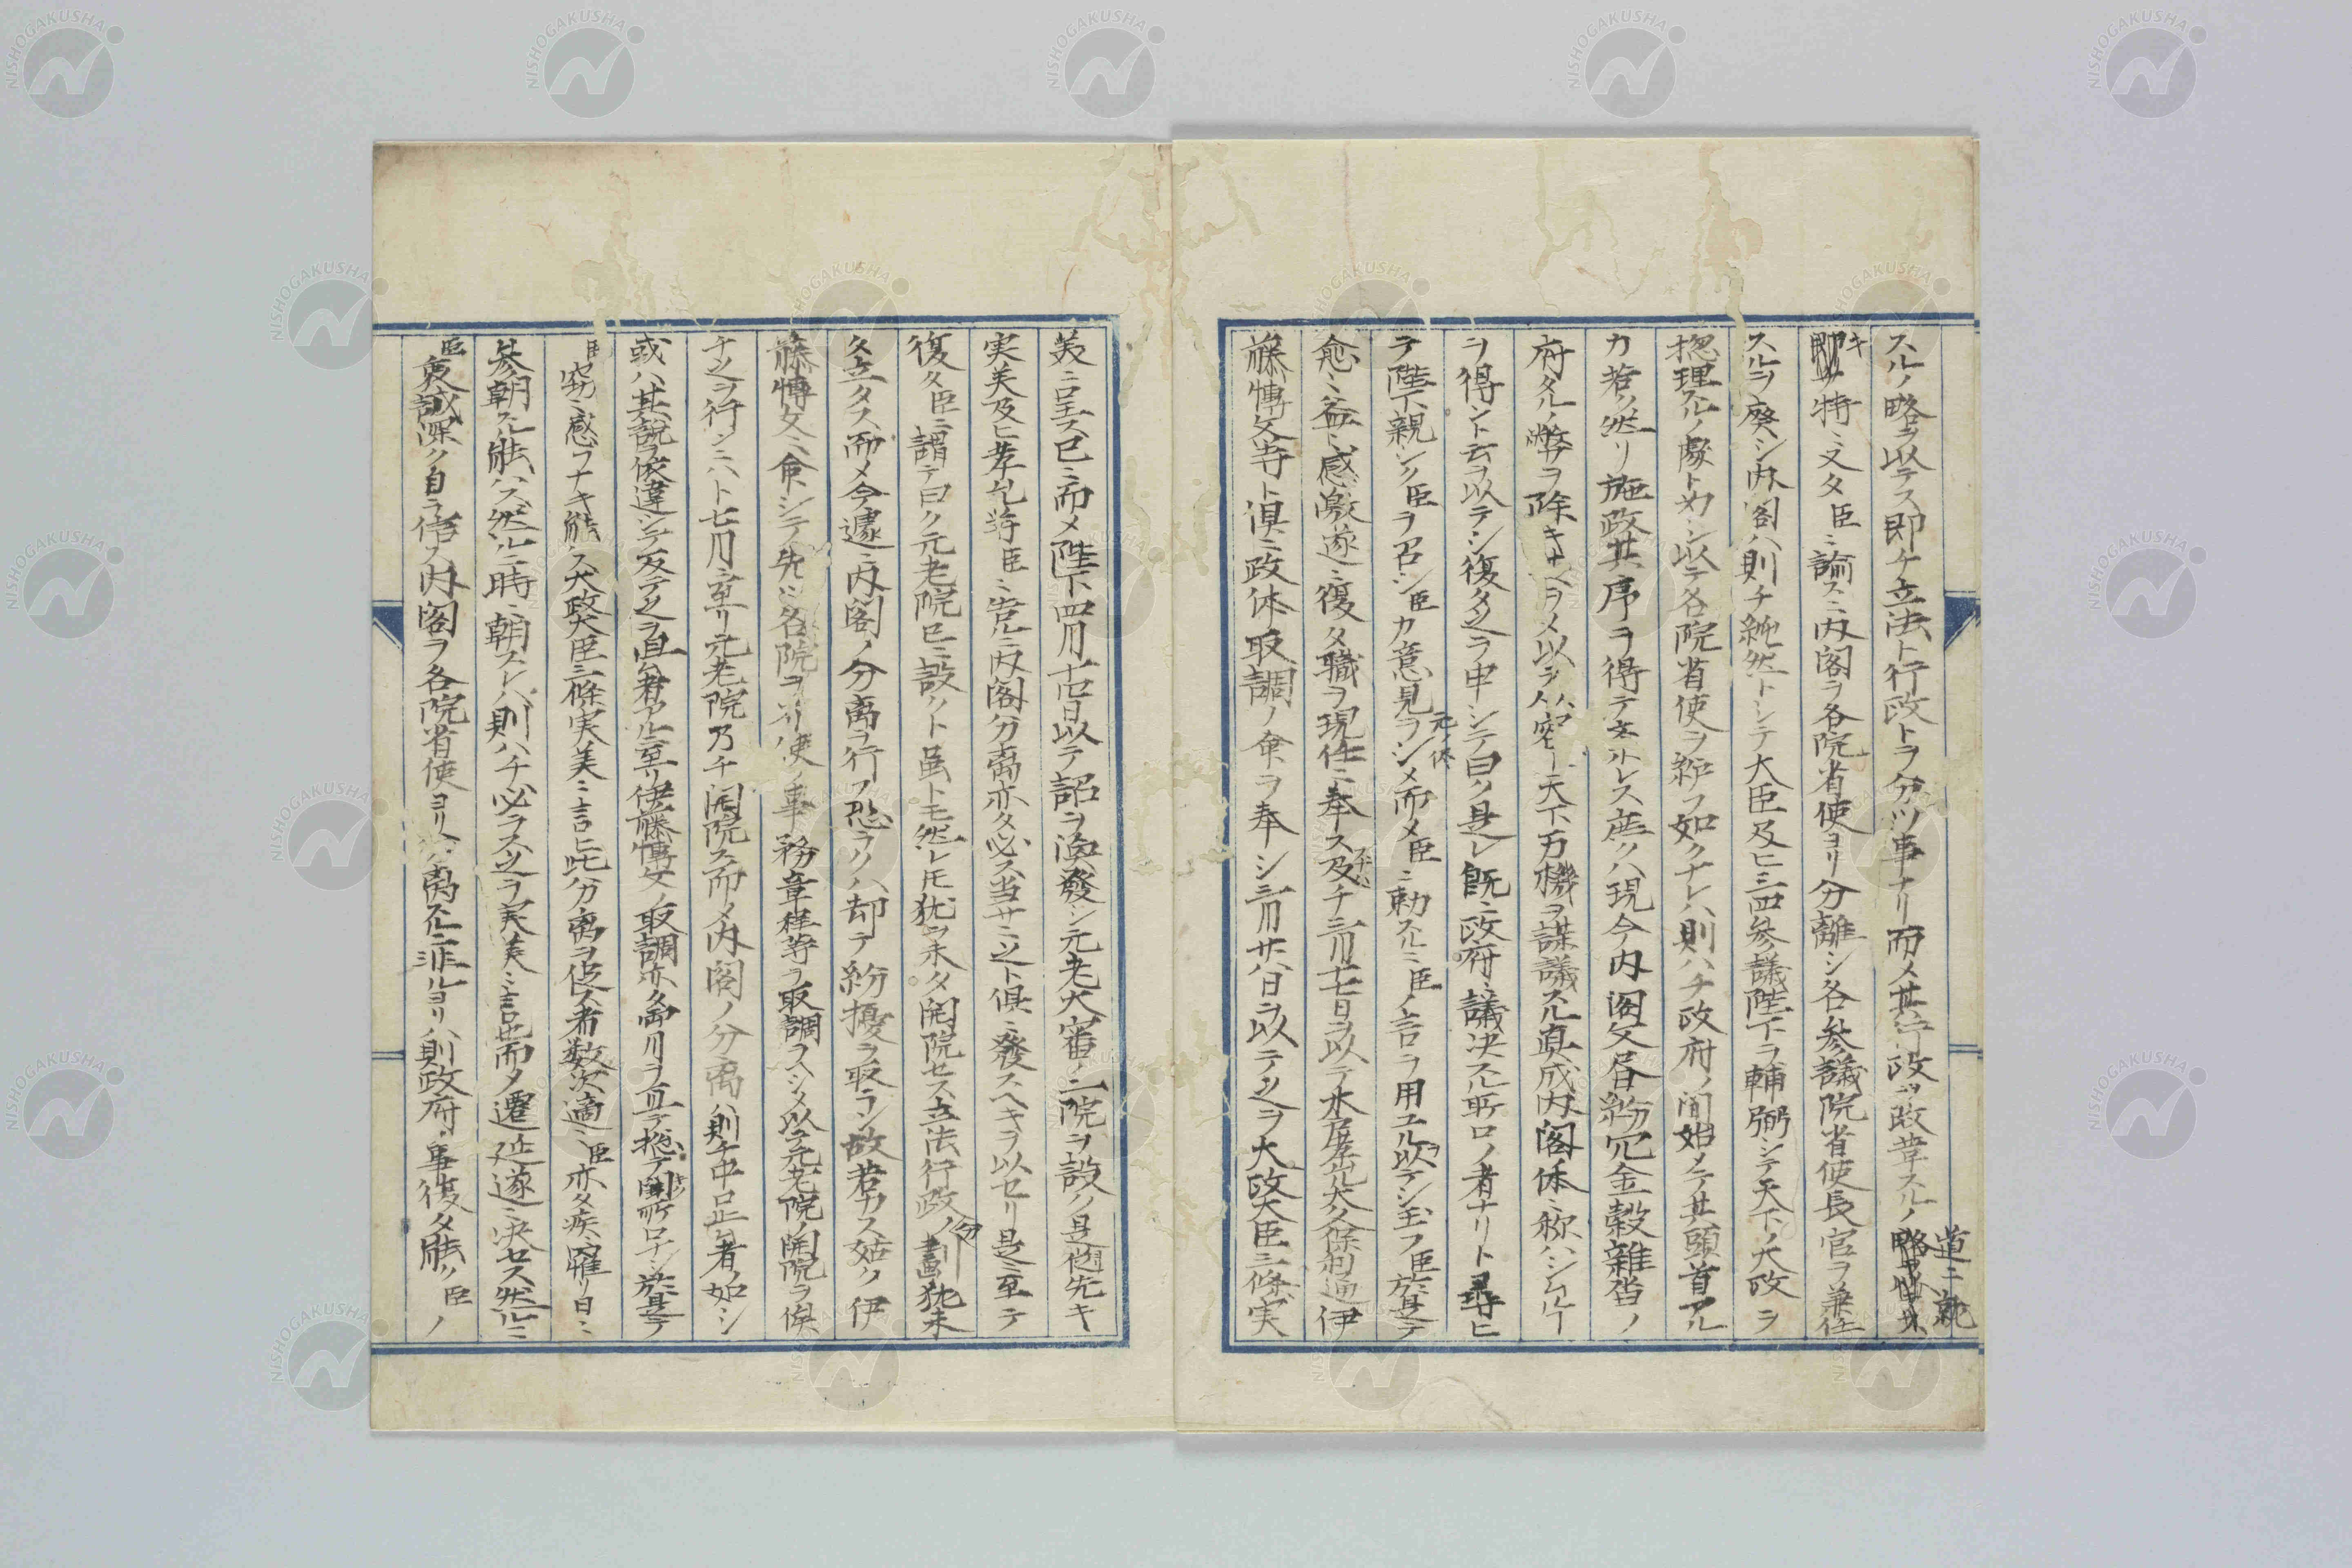 スルノ略ヲ以テス即チ立法ト行政トヲ分ツ事ナリ而メ其行政ニツ改革スルノ
道ニ就
キ特ニ又タ臣ニ諭スニ内閣ヲ各院省使ヨリ分離シ各参議院省使長官ヲ兼任
スルヲ廃シ内閣ハ則チ純然トシテ大臣及ヒ三四参議陛下ヲ輔弼シテ天下ノ大政ヲ
惣理スルノ處ト为シ以テ各院省使ヲ統フ如クナレハ則ハチ政府ノ間始メテ其頭首アル
カ若ク然リ施政其序ヲ得テ紊レス庶クハ現今内閣文昏紛冗金穀雑沓ノ
府タルノ弊ヲ除キ以テ天下万機ヲ謀議スル真成内閣体ニ称ハシムルー
ヲ得ント云ヲ以テシ復タ之ヲ申シテ曰ク是レ既ニ政府ニ議决スル所ロノ者ナリト尋ヒ
テ陛下親シク臣ヲ召シ臣カ意見ヲシメ而メ臣ニ勅スルニ臣ノ言ヲ用ユルヲ以テシ玉フ臣於是テ
愈ミ益ミ感激遂ニ復タ職ヲ現任ニ奉ス及チ三月十七日ヲ以テ木戸孝允大久保利通伊
藤博文等ト俱ニ政体取調ノ命ヲ奉シ三月廿八日ヲ以テ之ヲ大政大臣三條実
美ニ呈ス已ニ而メ陛下四月十四日以テ詔ヲ渙發シ元老大審ノ二院ヲ設ク是ヨリ先キ
実美及ヒ孝允等臣ニ告ルニ内閣分离亦タ必ス当サニ之ト俱ニ發スヘキヲ以セリ是ニ至テ
復タ臣ニ謂テ曰ク元老院已ニ設クト虽トモ然レトモ犹ヲ未タ開院セス立法行政ノ分畫犹未
タ立タス而メ今遽ニ内閣ノ分离ヲ行フ恐ラクハ却テ紛擾ヲ取ラン故若カス姑ク伊
藤博文ニ命シテ先ツ各院省使ノ事務章程等ヲ取調ラスシメ以テ元老院ノ開院ヲ俟
チ之ヲ行ンニハト七月ニ至リ元老院乃チ開院ス而メ内閣ノ分离ハ則チ中止者ノ如シ
或ハ其說ヲ依違シテ反テ之ヲ沮ム者アルニ至リ伊藤博文ノ取調亦タ両月ヲ亘テ惣テ聞所ロナシ於是テ
臣窃ニ惑フナキ能ス大政大臣三條実美ニ言ヒ此分离ヲ促ス者数次適ミ臣亦タ疾ニ罹リ日ニ
参朝スル能ハス然ルニ時ニ朝スレハ則ハチ必ラス之ヲ実美ニ言而メ遷延遂ニ决セス然ルニ
臣衷誠深ク自ラ信ス内閣ヲ各院省使ヨリ分离スルニ非ルヨリハ則政府ノ事復タ能ク臣ノ